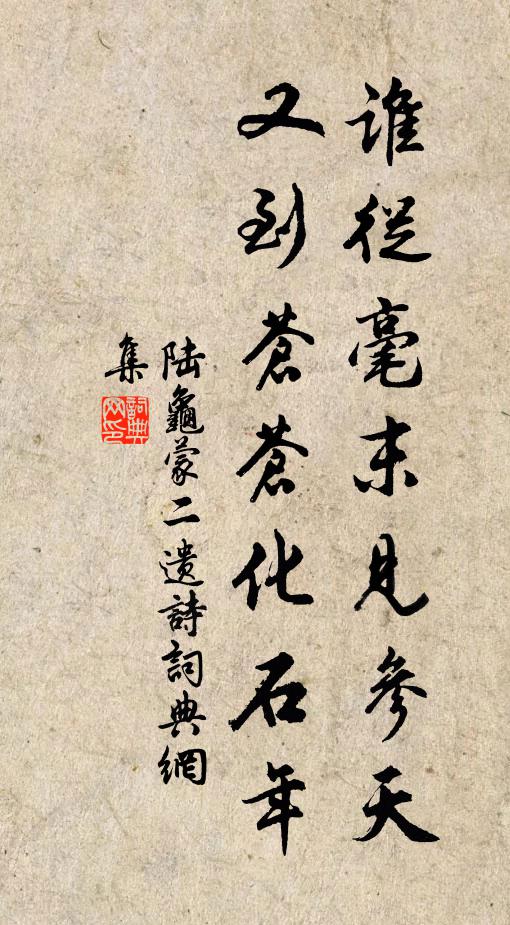 誰從毫末見參天
又到蒼蒼化石年
陸龜蒙二遺詩詞典網
集
詞典網印